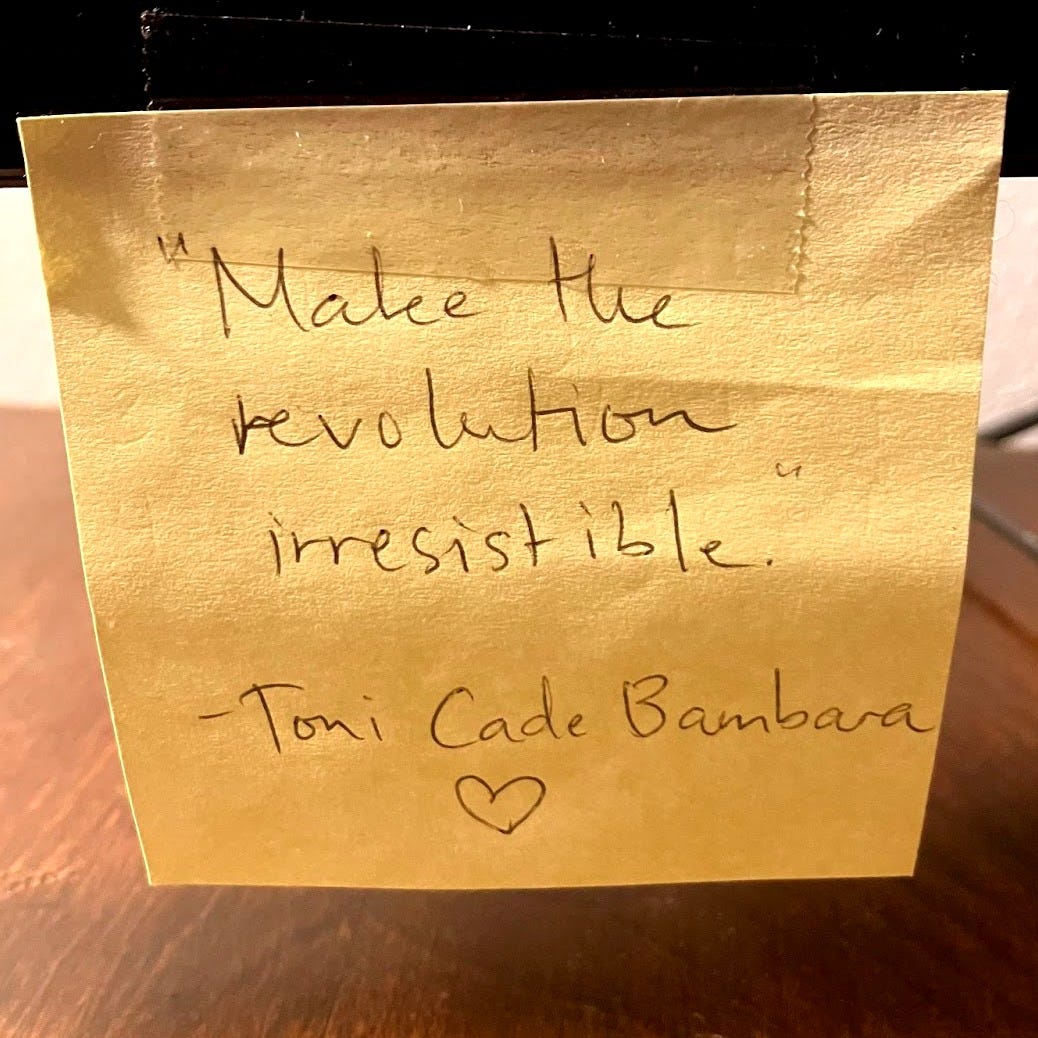 "Make the
revolution
irresistible."
-Toni Cade Bambara